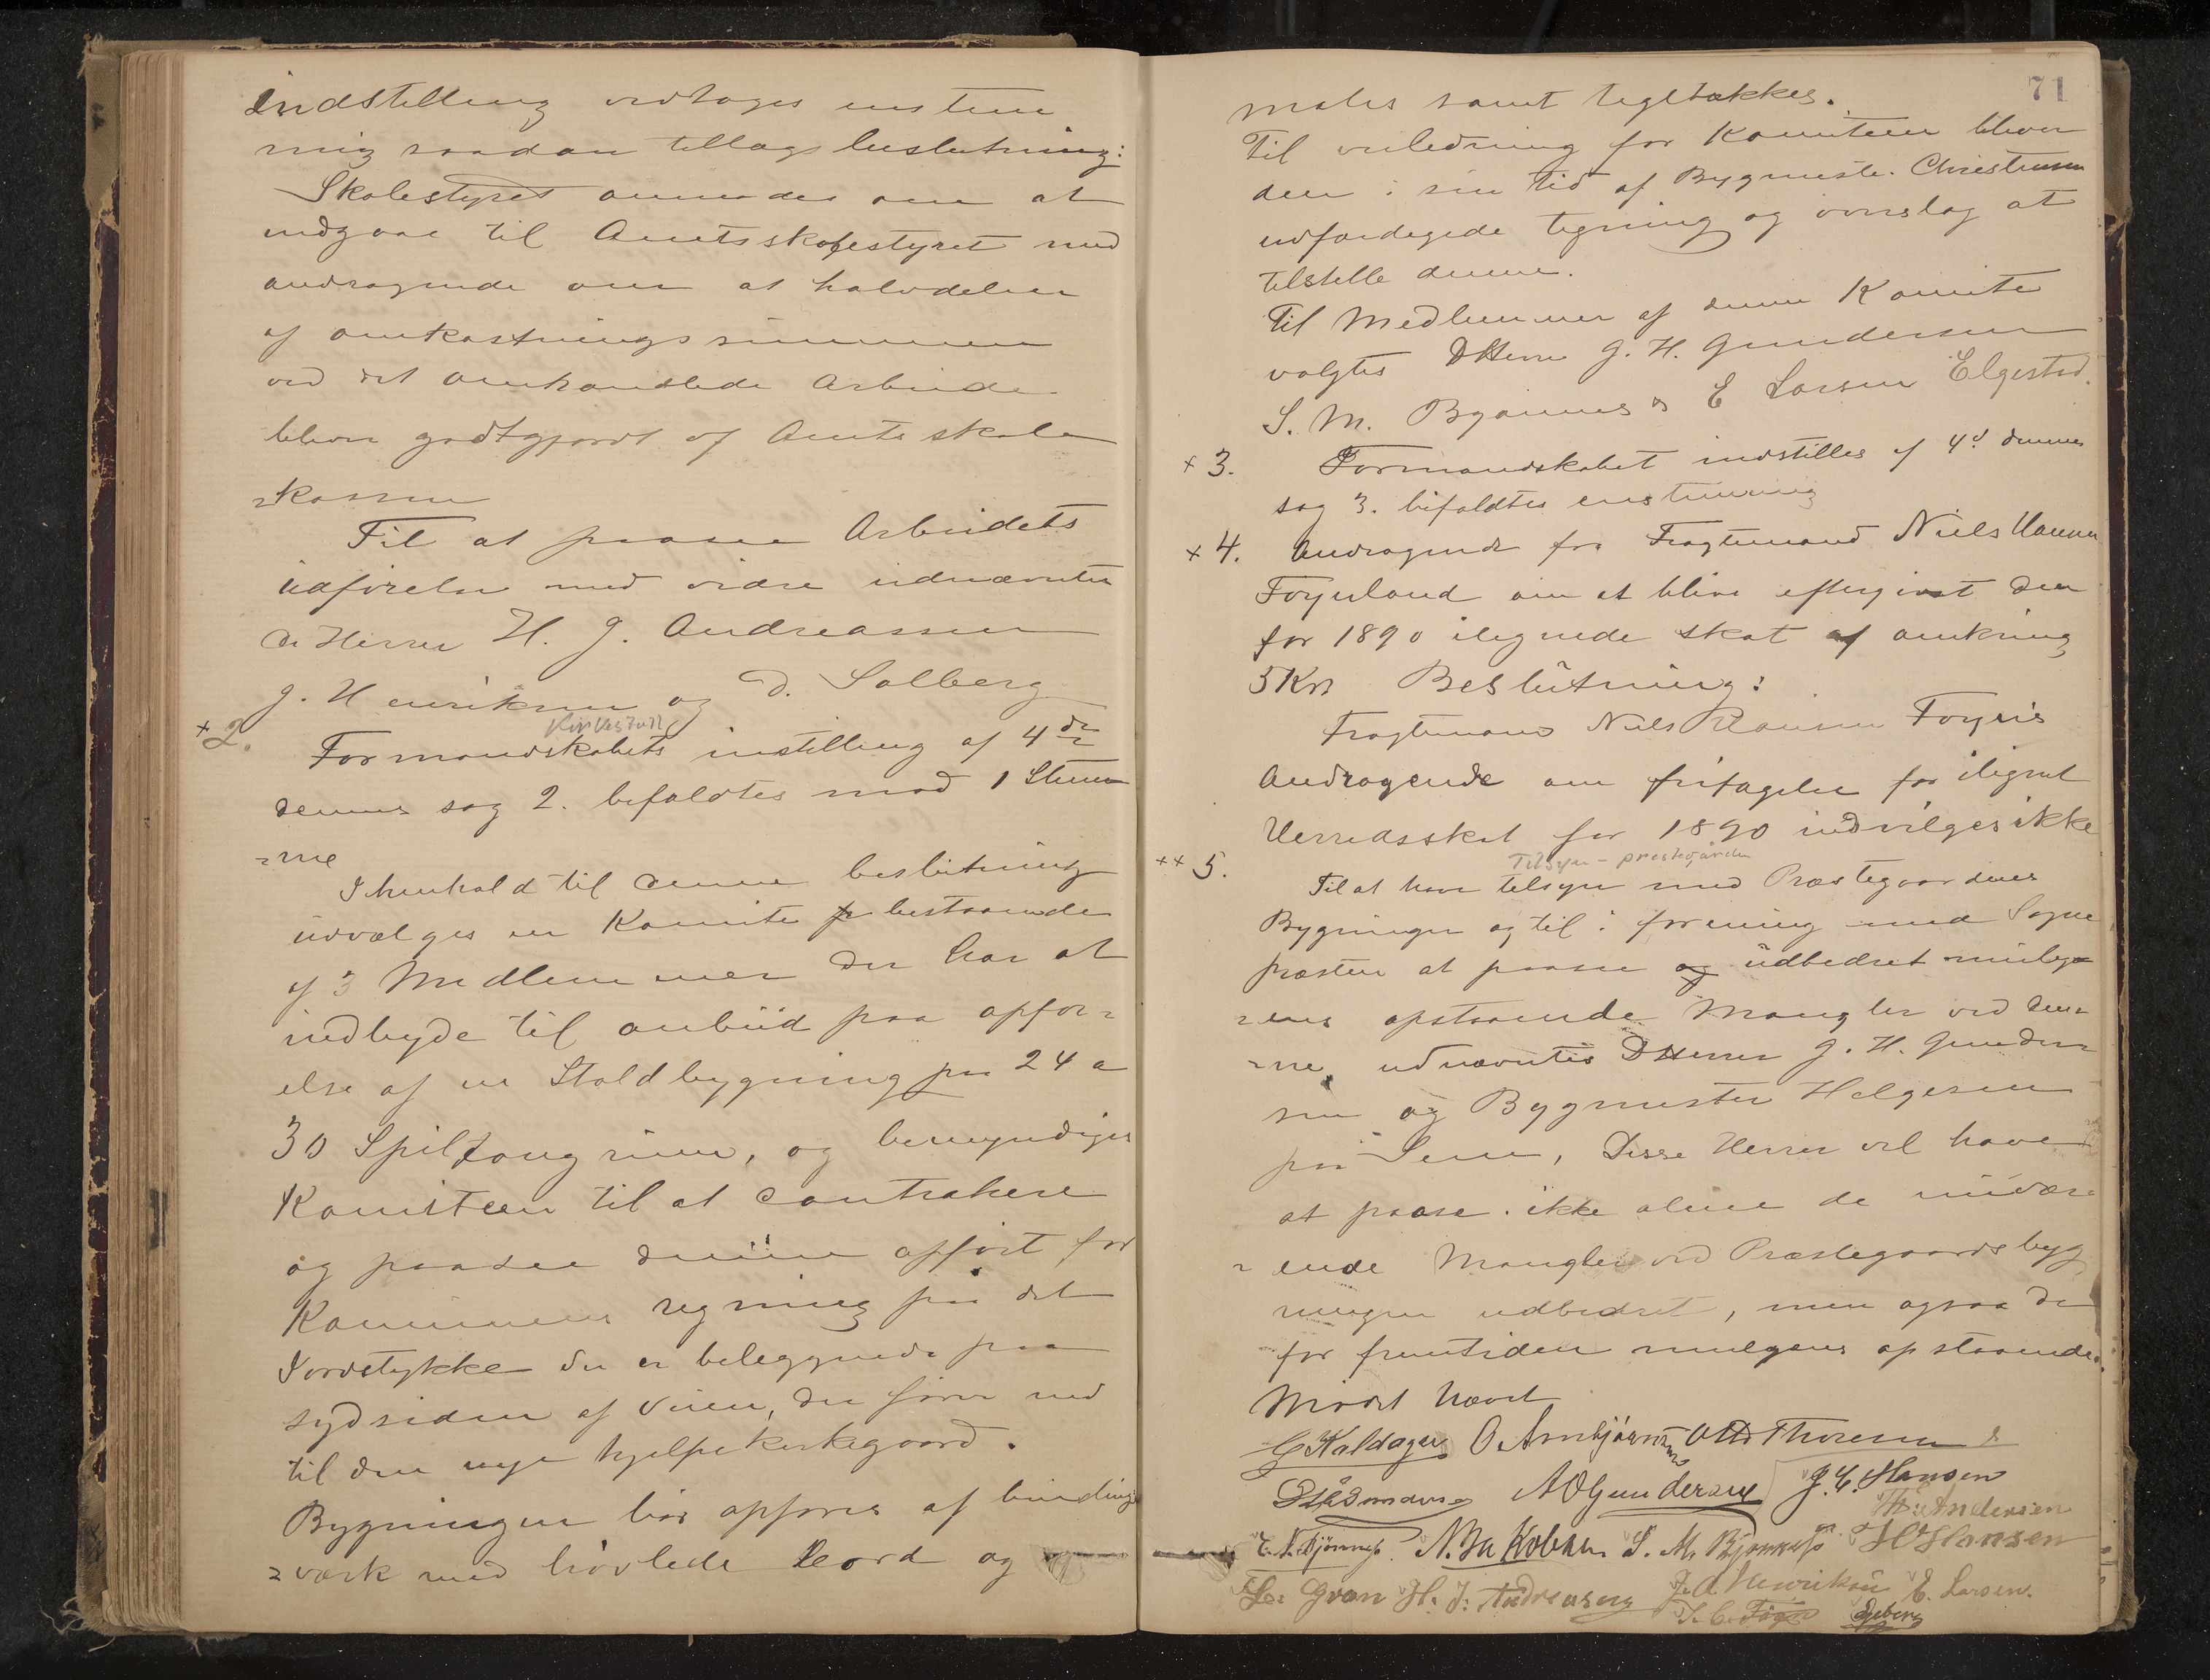 Indstilling vedtoges enstem
mig saadan tillægsbeslutning:
Skolestyret anmodes om at
indgaae til Amtsskolestyret med
andragende om at halvdelen
af omkostningssummen
ved det omhandlede Arbeide
bliver godtgjordt af Amtsskole
=kassen
Til at paasee Arbeidets
udførelse med videre udnævntes
de Herrer H. J. Andreassen
J. Henriksen og D. Solberg
Kirkestall
+2. Formandskabets instilling af 4de
dennes sag 2. bifaldtes mod 1 Stem
=me
I henhold til denne beslutning
udvælges en Komite bestaaende
af 3 Medlemmer der har at
indbyde til anbud paa opfør=
else af en Staldbygning paa 24 a
30 Spiltougrum, og bemyndiges
Komiteen til at contrahere
og paasee denne opført for
Kommunens regning paa det
Jordstykke der er beleggende paa
sydsiden af Veien, der fører ned
til den nye hjelpekirkegaard.
Bygningen bør opføres af binding
=værk med høvlede Bord og
71
males samt tegltækkes.
Til veiledning for Komiteen bliver
den i sin tid af Bygmester Christensen
udfærdigede tegning og overslag at
tilstille denne.
Til Medlemmer af denne Komite
valgtes DHerrer J. H. Gundersen
S. M. Bjønnes og E Larsen Elgested.
+ 3. Formandskabet indstilles af 4d dennes
sag 3. bifaldtes enstemmig
+ 4. Andragende fra Fragtemand Niels Hansen
Foyerland om at blive eftergivet den
for 1890 ilignede skat af omkring
5 Kr Beslutning:
Fragtemand Niels Hansen Foyns
Andragende om fritagelse for ilignet
Herredsskat for 1890 indvilges ikke
Tilsyn - prestegården
++ 5. Til at have tilsyn med Præstegaardens
Bygninger og til i forening med Sogne
præsten at paasee og udbedret mulige
=ens opstaaende Mangler ved den=
=ne, udnævntes DHerrer J. H. Gunder=
sen og Bygmester Helgesen
paa Sem, Disse Herrer vil have
at paase ikke alene de nuvær
=ende Mangler ved Præstegaardsbyg
ningen udbedret, men ogsaa de
for fremtiden muligens opstaaende.
Mødet hævet
G Kaldager O. Arnbjørnsen Otto Thoresen
A O Gundersen J. C. Hansen
Th. Andersen
E. N. Bjønnes N. Jakobsen S. M. Bjønnes H Hansen
L. Gran H. J. Andreasen J. A. Henriksen E. Larsen.
J. C. Føyn